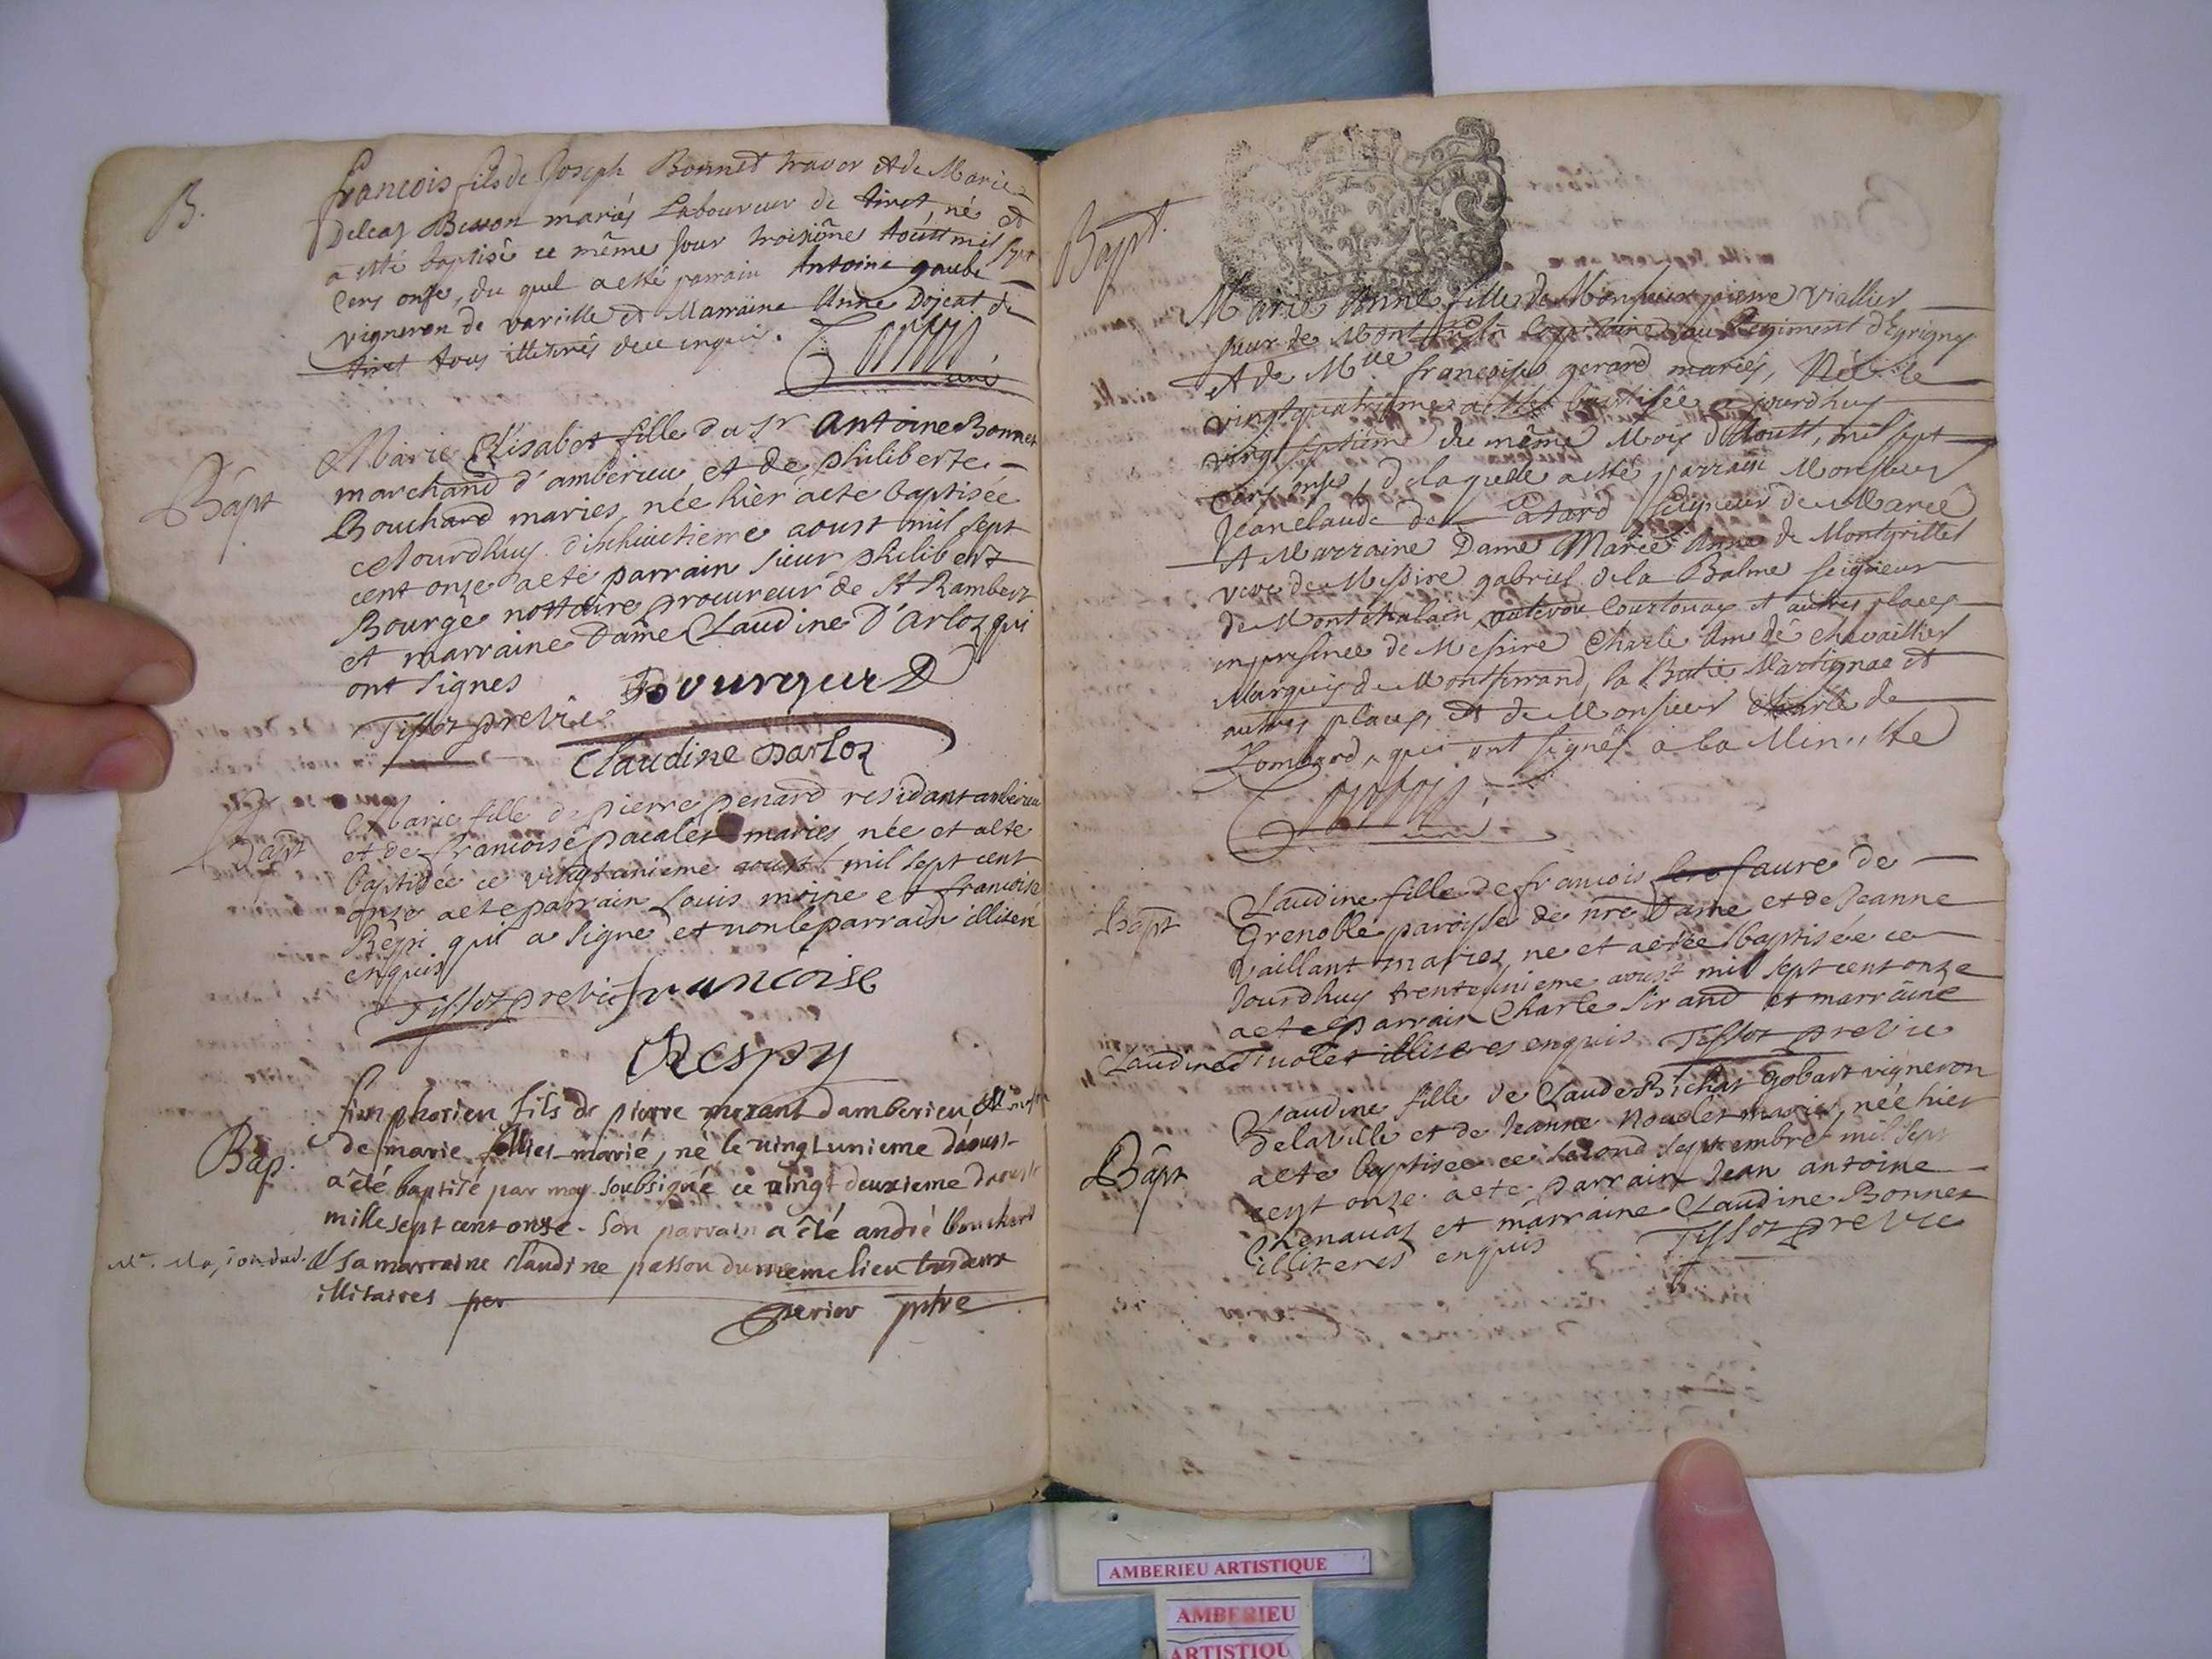 B.
francois fils de Joseph Bonnet travor et de Marie
Beson mariés Laboureur de tiret, né et
a esté baptisé ce même Jour troisième Aoust mil sept
cens onze, du quel a esté parrain Antoine gaube
vigneron de vareille et Marraine Anne Dojeat de
tiret tous illiterés de ce enquis.
curé
Bapt
Marie Elisabet fille du Sr Antoine Bonnet
marchand d'amberieu et de philiberte
Bouchard maries, née hier acte baptisée
cejourdhuy dixhuictieme aoust mil sept
cent onze acté parrain sieur philibert
Bourge nottaire procureur de St Rambert
et marraine Dame Claudine D'arloz qui
ont signes
Tissot previc
Claudine Darloz
Bapt
Marie fille de pierre penard residant amberieu
et de francoise pacalet maries née et aeté
baptisée ce vingtunieme aoust mil sept cent
onze aete parrain Louis moine et francoise
Réspi qui a signe et non le parrain illiteré
enquis
Tissot previc francoise
Respy
Bap.
sinphorien fils de pierre morant damberieu
de marie marié, né le vingt unieme daoust
a été baptisé par moy soubsigné ce vingt deuxieme daoust
mille sept cent onze. son parrain a été andré bouchard
et sa marraine Claudine passou du meme lieu tous deux
illitaires per
perier ptre
Bapt.
Marie Anne fille de Monsieur pierre Viallier
sieur de capitaine au Regiment d'Egrigny
et de Mlle françoise gerard mariés, Née le
vingtquatrieme a esté baptisée ajourdhuy
vingt septieme du même Mois d'Aoust, mil sept
cens onze, de laquelle a esté parrain Monsieur
Jean claude de Catard seigneur de Marcé
et Marraine Dame Marie Anne de Montgrillet
veve de Messire gabriel de la Balme seigneur
de Montchalain, outevou Courtouax et autres places
en presence de Messire Charle Amedé chevaillier
Marquis de Montferrand, la Batie Martignac et
autres places, et de Monsieur Charle de
Lombard, qui ont signés a la Minutte
curé
Bapt
Claudine fille de francois faure de
Grenoble paroisse de nre Dame et de Jeanne
vaillant maries ne et aetée baptisée ce
Jourdhuy trenteunieme aoust mil sept cent onze
aete parrain Charle Sirand et marraine
Claudine illiteres enquis Tissot previc
Bapt
Claudine fille de Claude Bichat Gobart vigneron
delaville et de Jeanne Nouelet maries, née hier
aete baptisee ce second septembre mil sept
cent onze aete parrain Jean antoine
Chenavaz et marraine Claudine Bonnet
illiteres enquis Tissot previc
AMBERIEU ARTISTIQUE
AMBERIEU
ARTISTIQU